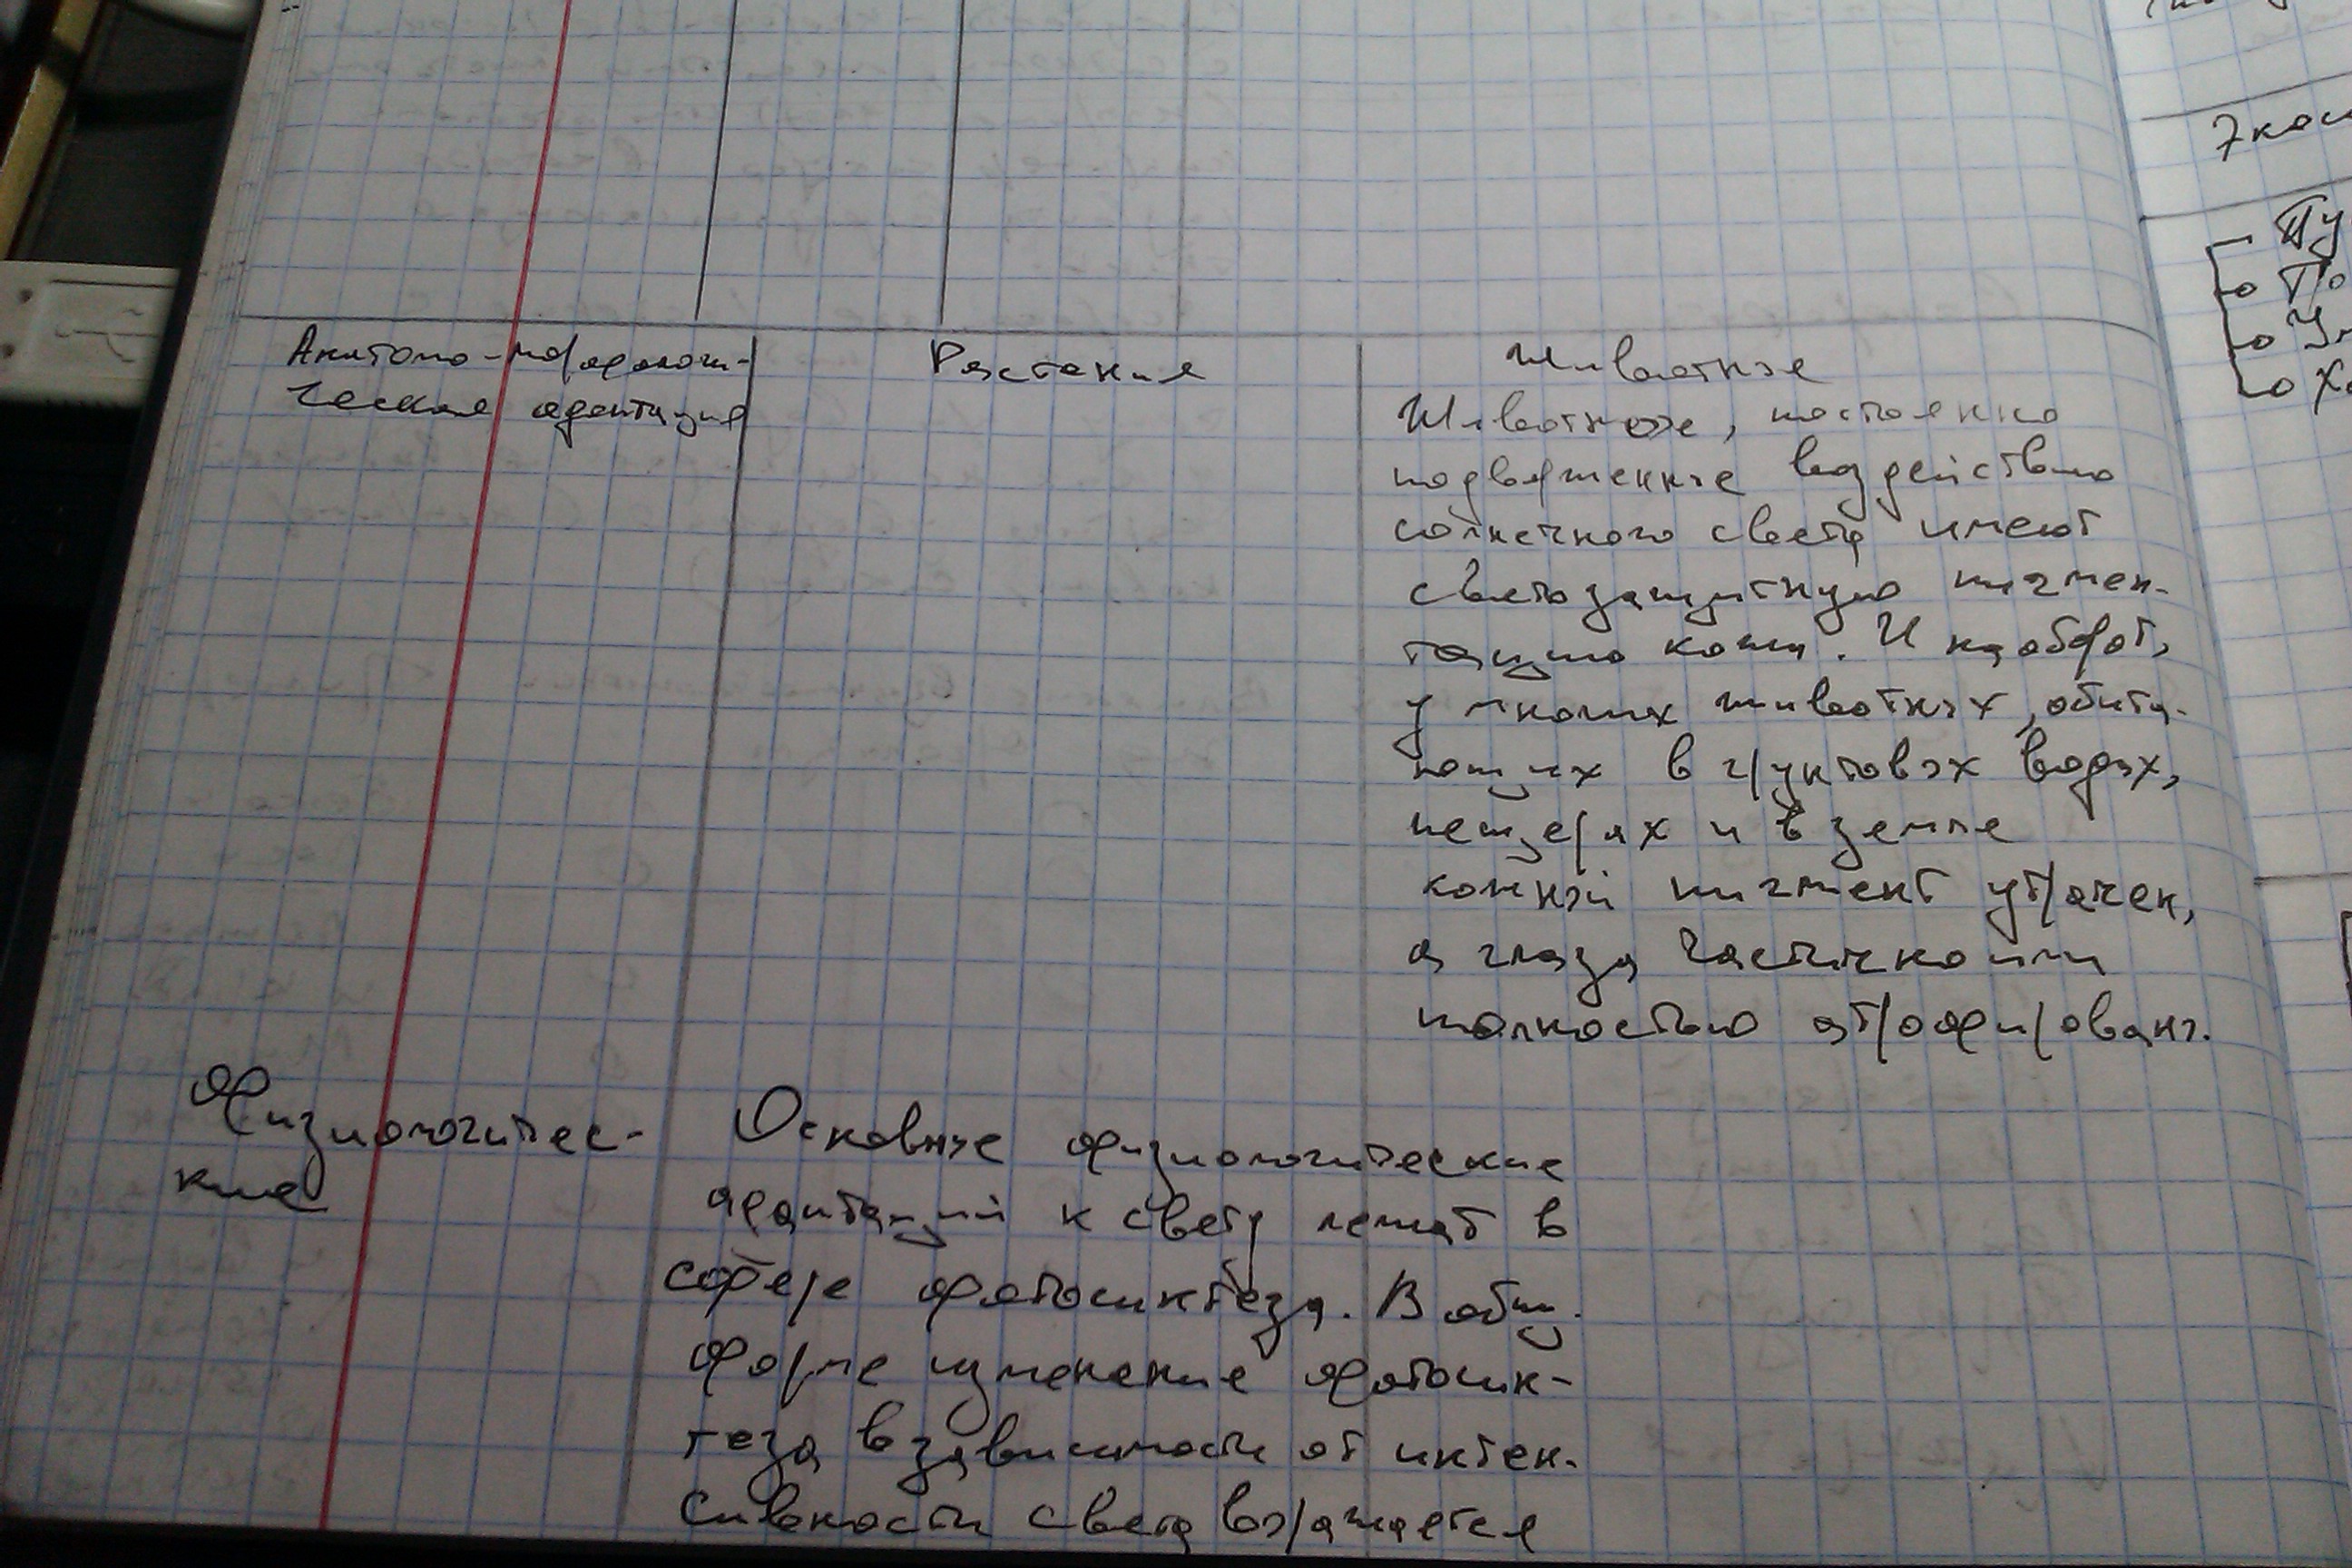 Анатомо-морфологи-
ческие адаптации
Растение
Животные
Животное, постоянно
подверженные воздействию
солнечного света имеют
светозащитную пигмен-
тацию кожи. И наоборот,
у многих животных, обита-
ющих в грунтовых водах,
пещерах и в земле
кожный пигмент утрачен,
а глаза частично или
полностью атрофированы.
Физиологичес-
кие
Основные физиологические
адаптации к свету лежат в
сфере фотосинтеза. В общ.
форме изменение фотосин-
теза в зависимости от интен-
сивности света выражается
Экос
Пу
По
Ха